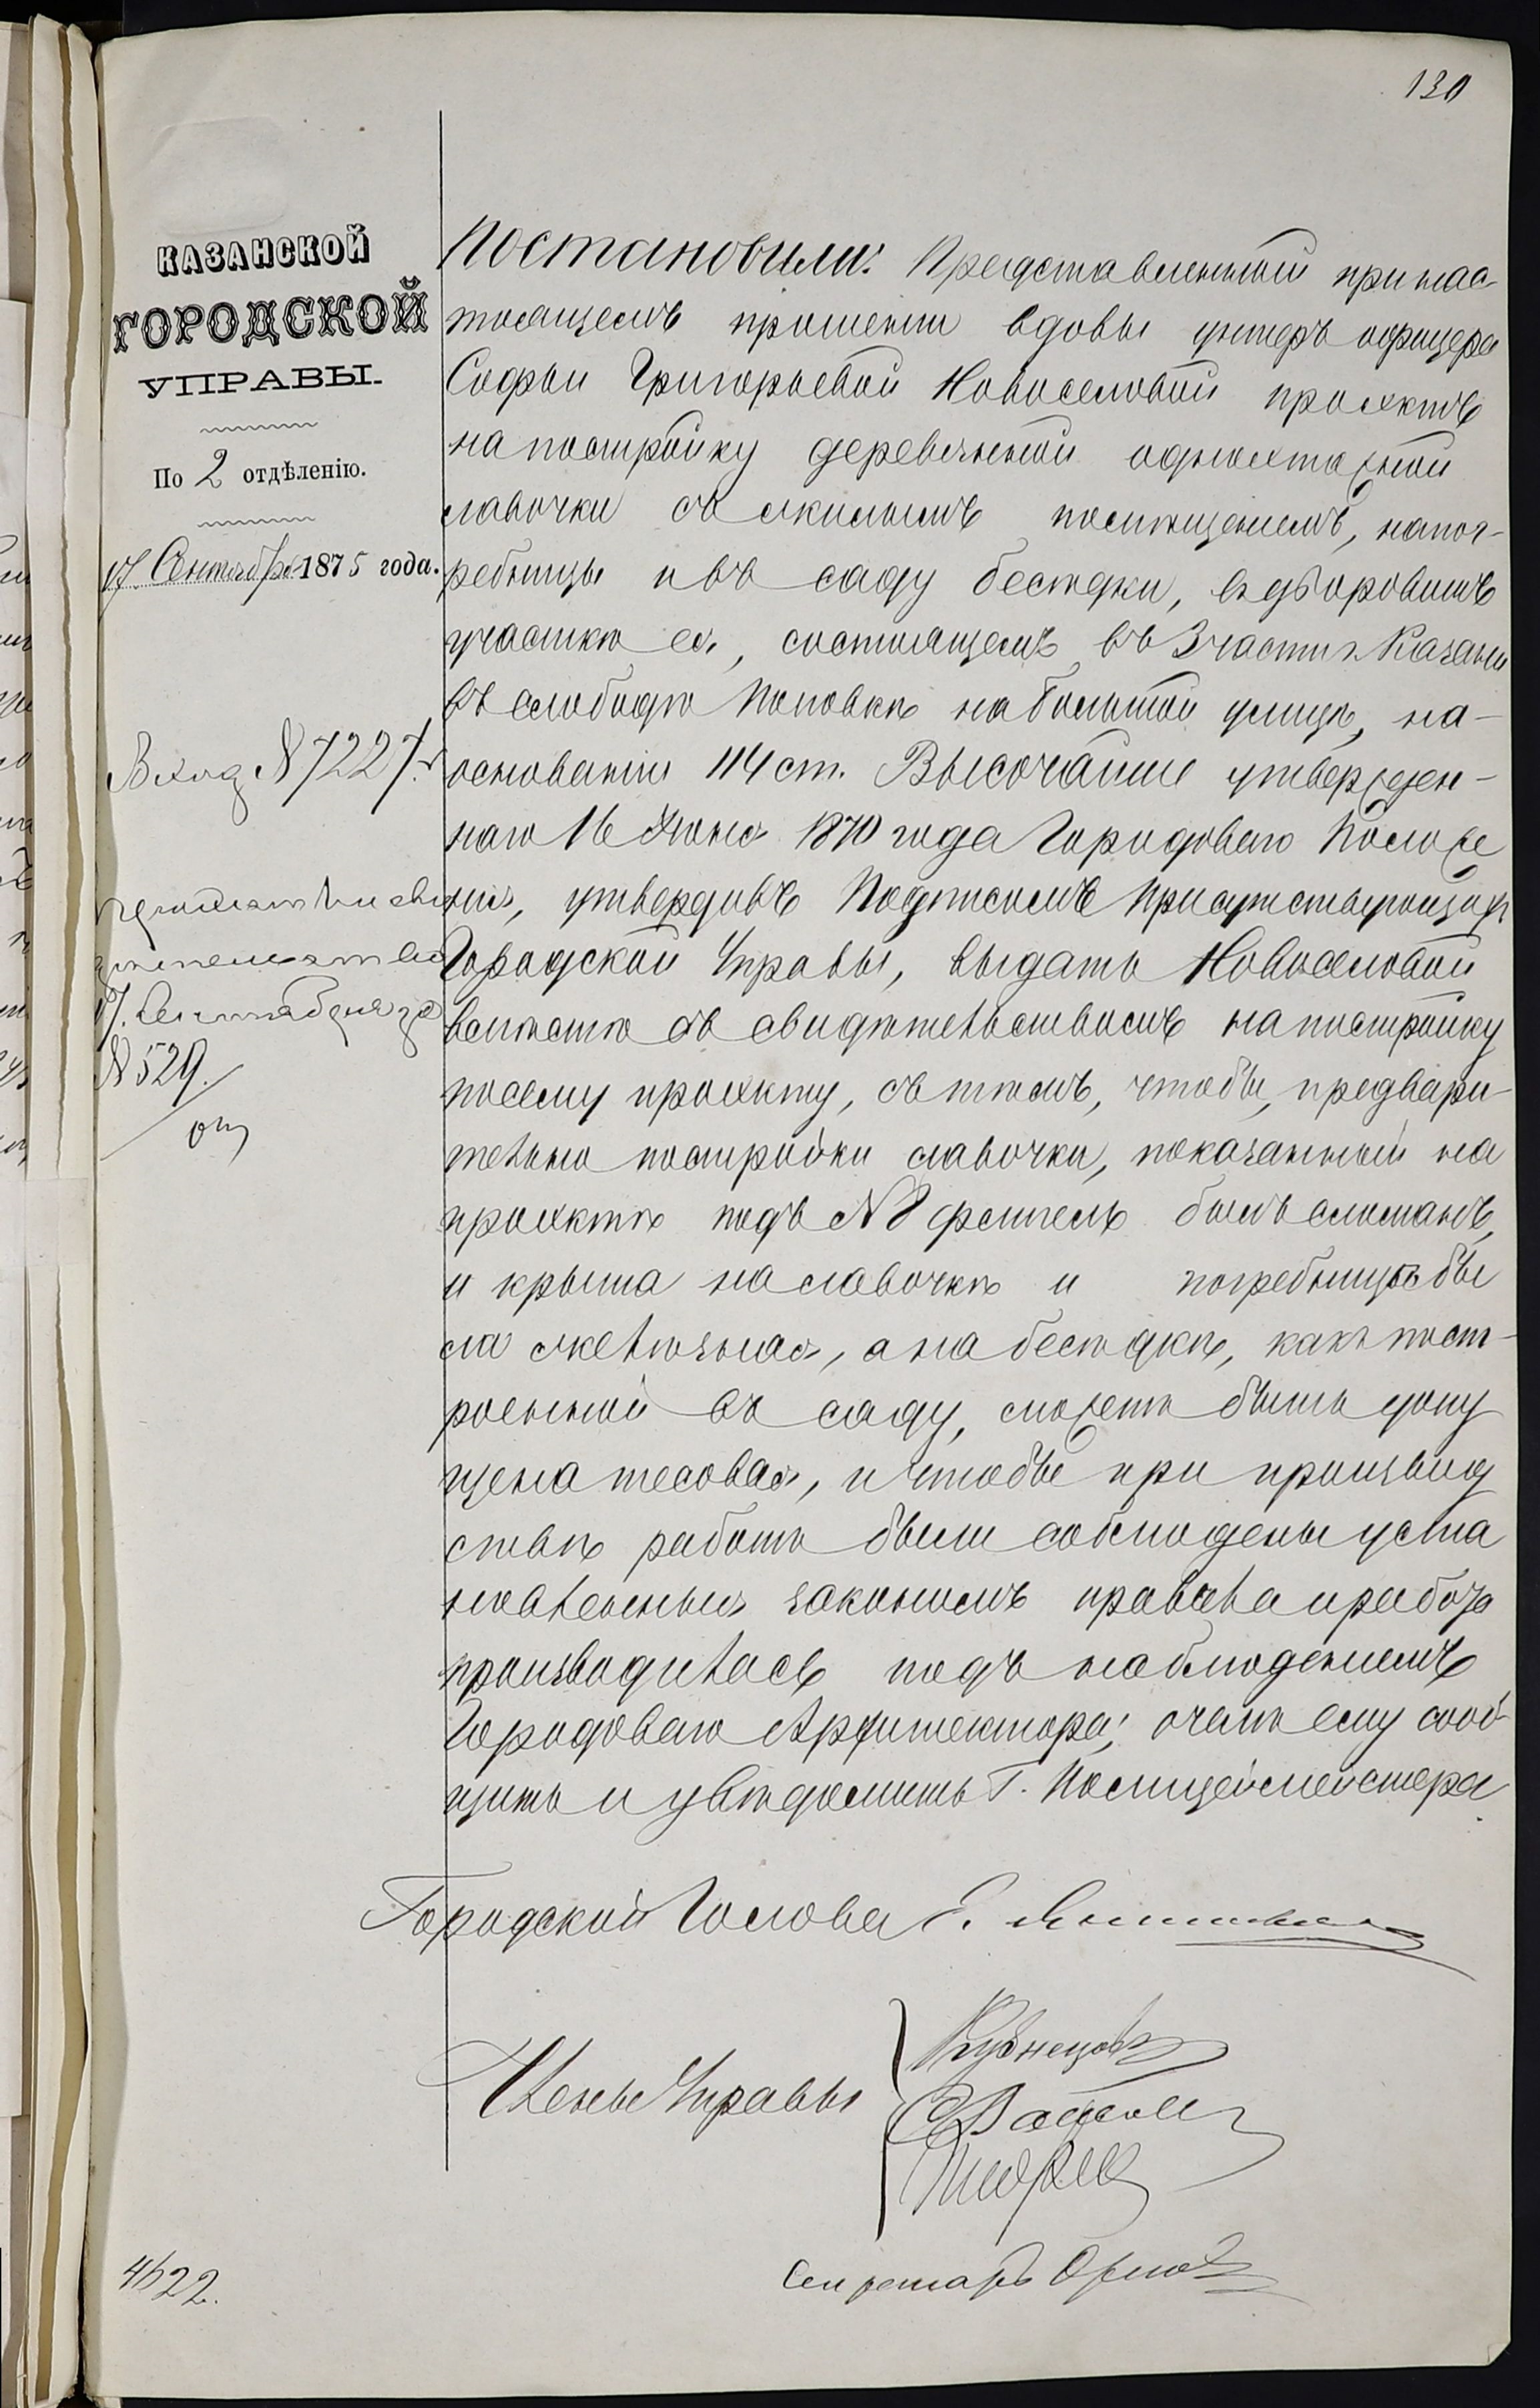 130
КАЗАНСКОЙ
ГОРОДСКОЙ
УПРАВЫ.
По 2 отдѣленію.
17 Сентября 1875 года.
Вход № 7227.
17. Сентября за
№ 529.
Постановили: Представленный при нас-
тоящемъ прошеніи вдовы унтеръ офицера
Софьи Григорьевой Новоселовой проэктъ
на постройку деревянной одноэтажной
лавочки съ жилымъ помѣщеніемъ, напог-
ребницы и въ саду бесѣдки, въ дворовомъ
участкѣ ея, состоящемъ въ 3 части г. Казани
въ слободѣ Поповкѣ на большой улицѣ, на-
основаніи 114 ст. Высочайше утвержден-
наго 16 Іюня 1870 года Городоваго Положе
нія, утвердивъ подписомъ Присутствующихъ
Городской Управы, выдать Новоселовой
вмѣстѣ съ свидѣтельствомъ на постройку
посему проэкту, съ тѣмъ, чтобы, предвари-
тельно постройки лавочки, показанный на
проэктѣ подъ № 8 флигель былъ сломанъ,
и крыша на лавочкѣ и погребницѣ бы
ла желѣзная, а на бесѣдкѣ, какъ пост-
роенной въ саду, можетъ быть допу
щена тесовая, и чтобы при производ
ствѣ работъ были соблюдены уста
новленныя закономъ правила и работа
производилась подъ наблюденіемъ
Городоваго Архитектора; о чемъ ему сооб-
щить и увѣдомить Г. Полиціймейстера.
Городской Голова Е.
Члены Управы
Кузнецовъ
Секретарь Орловъ
4622.